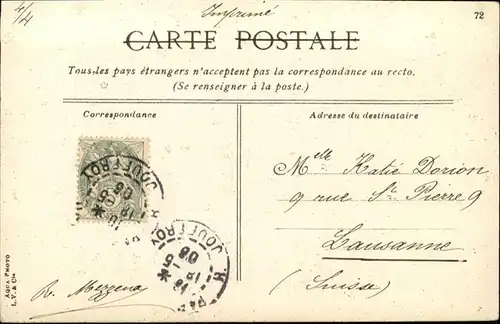 4/4
Imprimé
72
CARTE POSTALE
Tous les pays étrangers n'acceptent pas la correspondance au recto.
(Se renseigner à la poste.)
Correspondance
Adresse du destinataire
JOUFFROY
Mlle Katie Dorion
9 rue St Pierre 9
JOUFFROY
Lausanne
(Suisse)
R. Mezzena
AQUA PHOTO
L. V. & Cie